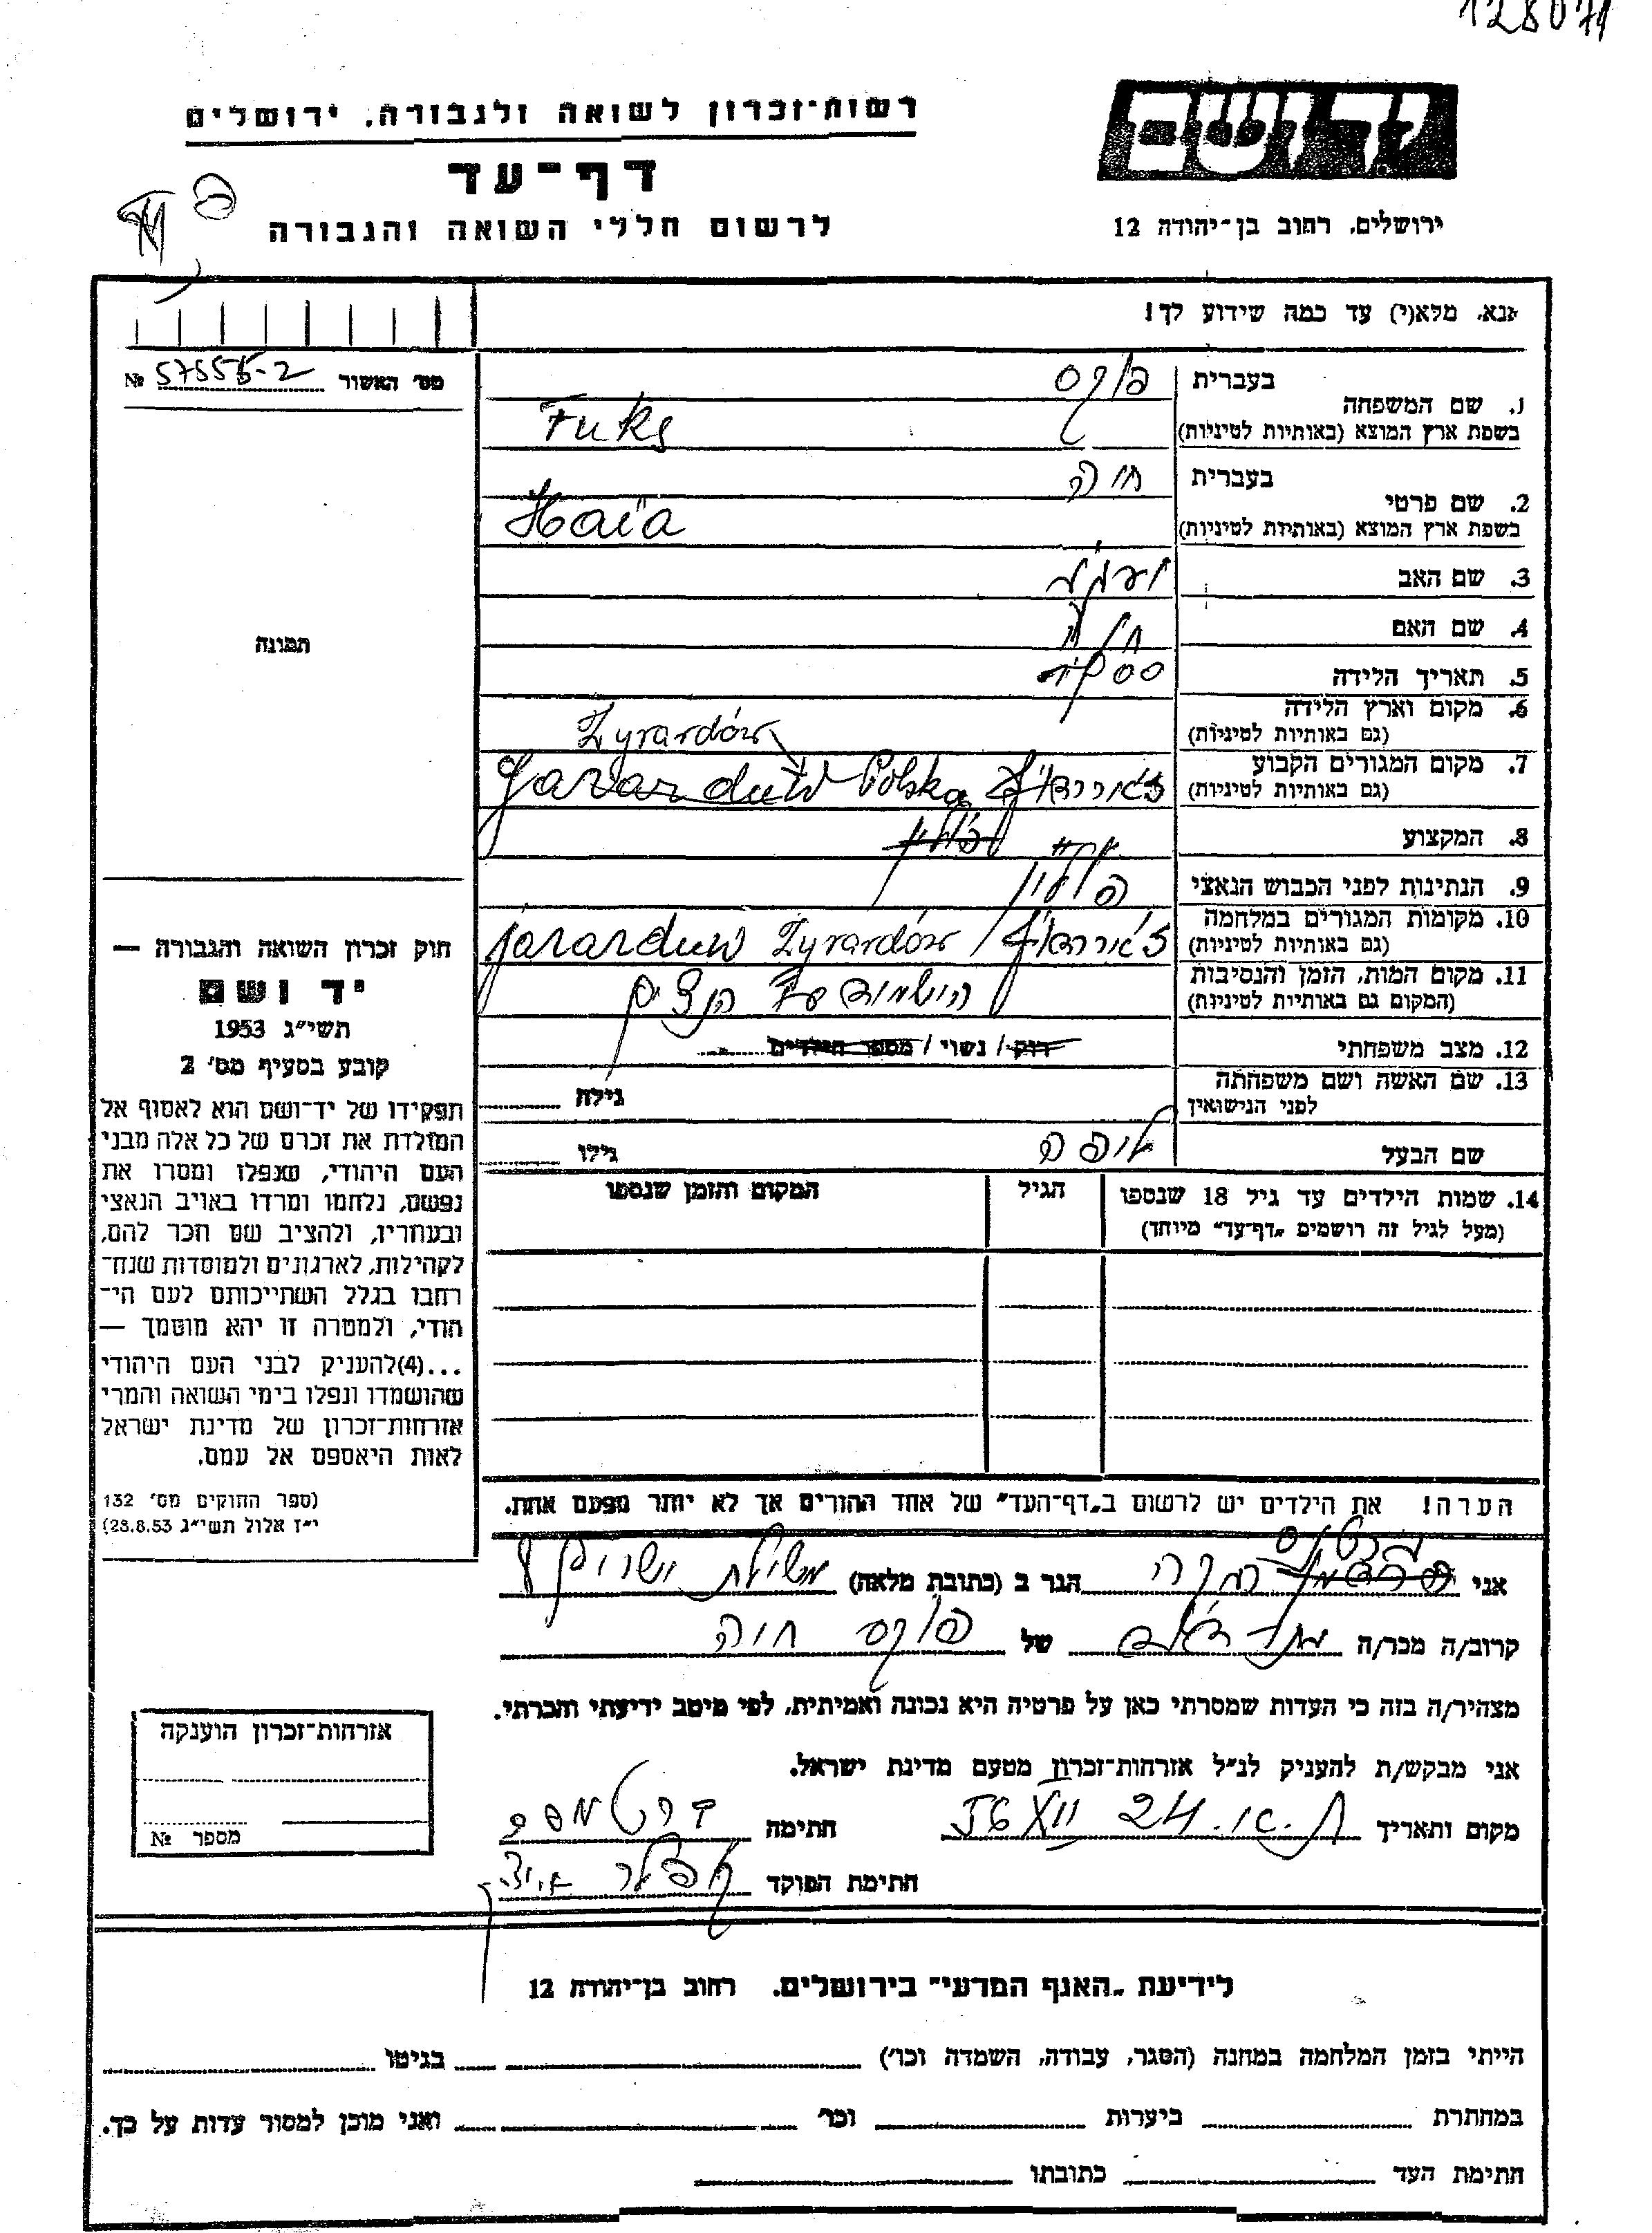 128071
רשות־זכרון לשואה ולגבורה, ירושלים
דף־עד
לרשום חללי השואה והגבורה
יד ושם
ירושלים, רחוב בן־יהודה 12
אנא, מלא(י) עד כמה שידוע לך!
מס' האשור 57555-2 №
תמונה
1. שם המשפחה
בעברית פוקס
בשפת ארץ המוצא (באותיות לטיניות) Fuks
2. שם פרטי
בעברית חיה
בשפת ארץ המוצא (באותיות לטיניות) Haïa
3. שם האב יעקב
4. שם האם
5. תאריך הלידה
6. מקום וארץ הלידה
(גם באותיות לטיניות) Zyrardów
7. מקום המגורים הקבוע
(גם באותיות לטיניות) ז'אררדוב Polska Jararduw
8. המקצוע
9. הנתינות לפני הכבוש הנאצי פולין
10. מקומות המגורים במלחמה
(גם באותיות לטיניות) ז'אררדוב / Zyrardów jararduw
11. מקום המות, הזמן והנסיבות
(המקום גם באותיות לטיניות) הושמדה ע"י הנצים
12. מצב משפחתי רוק / נשוי / מספר הילדים
13. שם האשה ושם משפחתה
לפני הנישואין
גילה
שם הבעל
גילו
14. שמות הילדים עד גיל 18 שנספו
(מעל לגיל זה רושמים „דף־עד" מיוחד)
הגיל
המקום והזמן שנספו
הערה! את הילדים יש לרשום ב„דף־העד" של אחד ההורים אך לא יותר מפעם אחת.
חוק זכרון השואה והגבורה —
יד ושם
תשי"ג 1953
קובע בסעיף מס' 2
תפקידו של יד־ושם הוא לאסוף אל
המולדת את זכרם של כל אלה מבני
העם היהודי, שנפלו ומסרו את
נפשם, נלחמו ומרדו באויב הנאצי
ובעוזריו, ולהציב שם וזכר להם,
לקהילות, לארגונים ולמוסדות שנח־
רבו בגלל השתייכותם לעם הי־
הודי, ולמטרה זו יהא מוסמך —
...(4)להעניק לבני העם היהודי
שהושמדו ונפלו בימי השואה והמרי
אזרחות־זכרון של מדינת ישראל
לאות היאספם אל עמם.
(ספר החוקים מס' 132
י"ז אלול תשי"ג 28.8.53)
אני הגר ב (כתובת מלאה)
קרוב/ה מכר/ה של פוקס חיה
מצהיר/ה בזה כי העדות שמסרתי כאן על פרטיה היא נכונה ואמיתית, לפי מיטב ידיעתי והכרתי.
אני מבקש/ת להעניק לנ"ל אזרחות־זכרון מטעם מדינת ישראל.
מקום ותאריך ת.א. 24 XII 56 חתימה
חתימת הפוקד
אזרחות־זכרון הוענקה
מספר №
לידיעת „האגף המדעי" בירושלים, רחוב בן־יהודה 12
הייתי בזמן המלחמה במחנה (הסגר, עבודה, השמדה וכו') בגיטו
במחתרת ביערות וכו' ואני מוכן למסור עדות על כך.
חתימת העד כתובתו